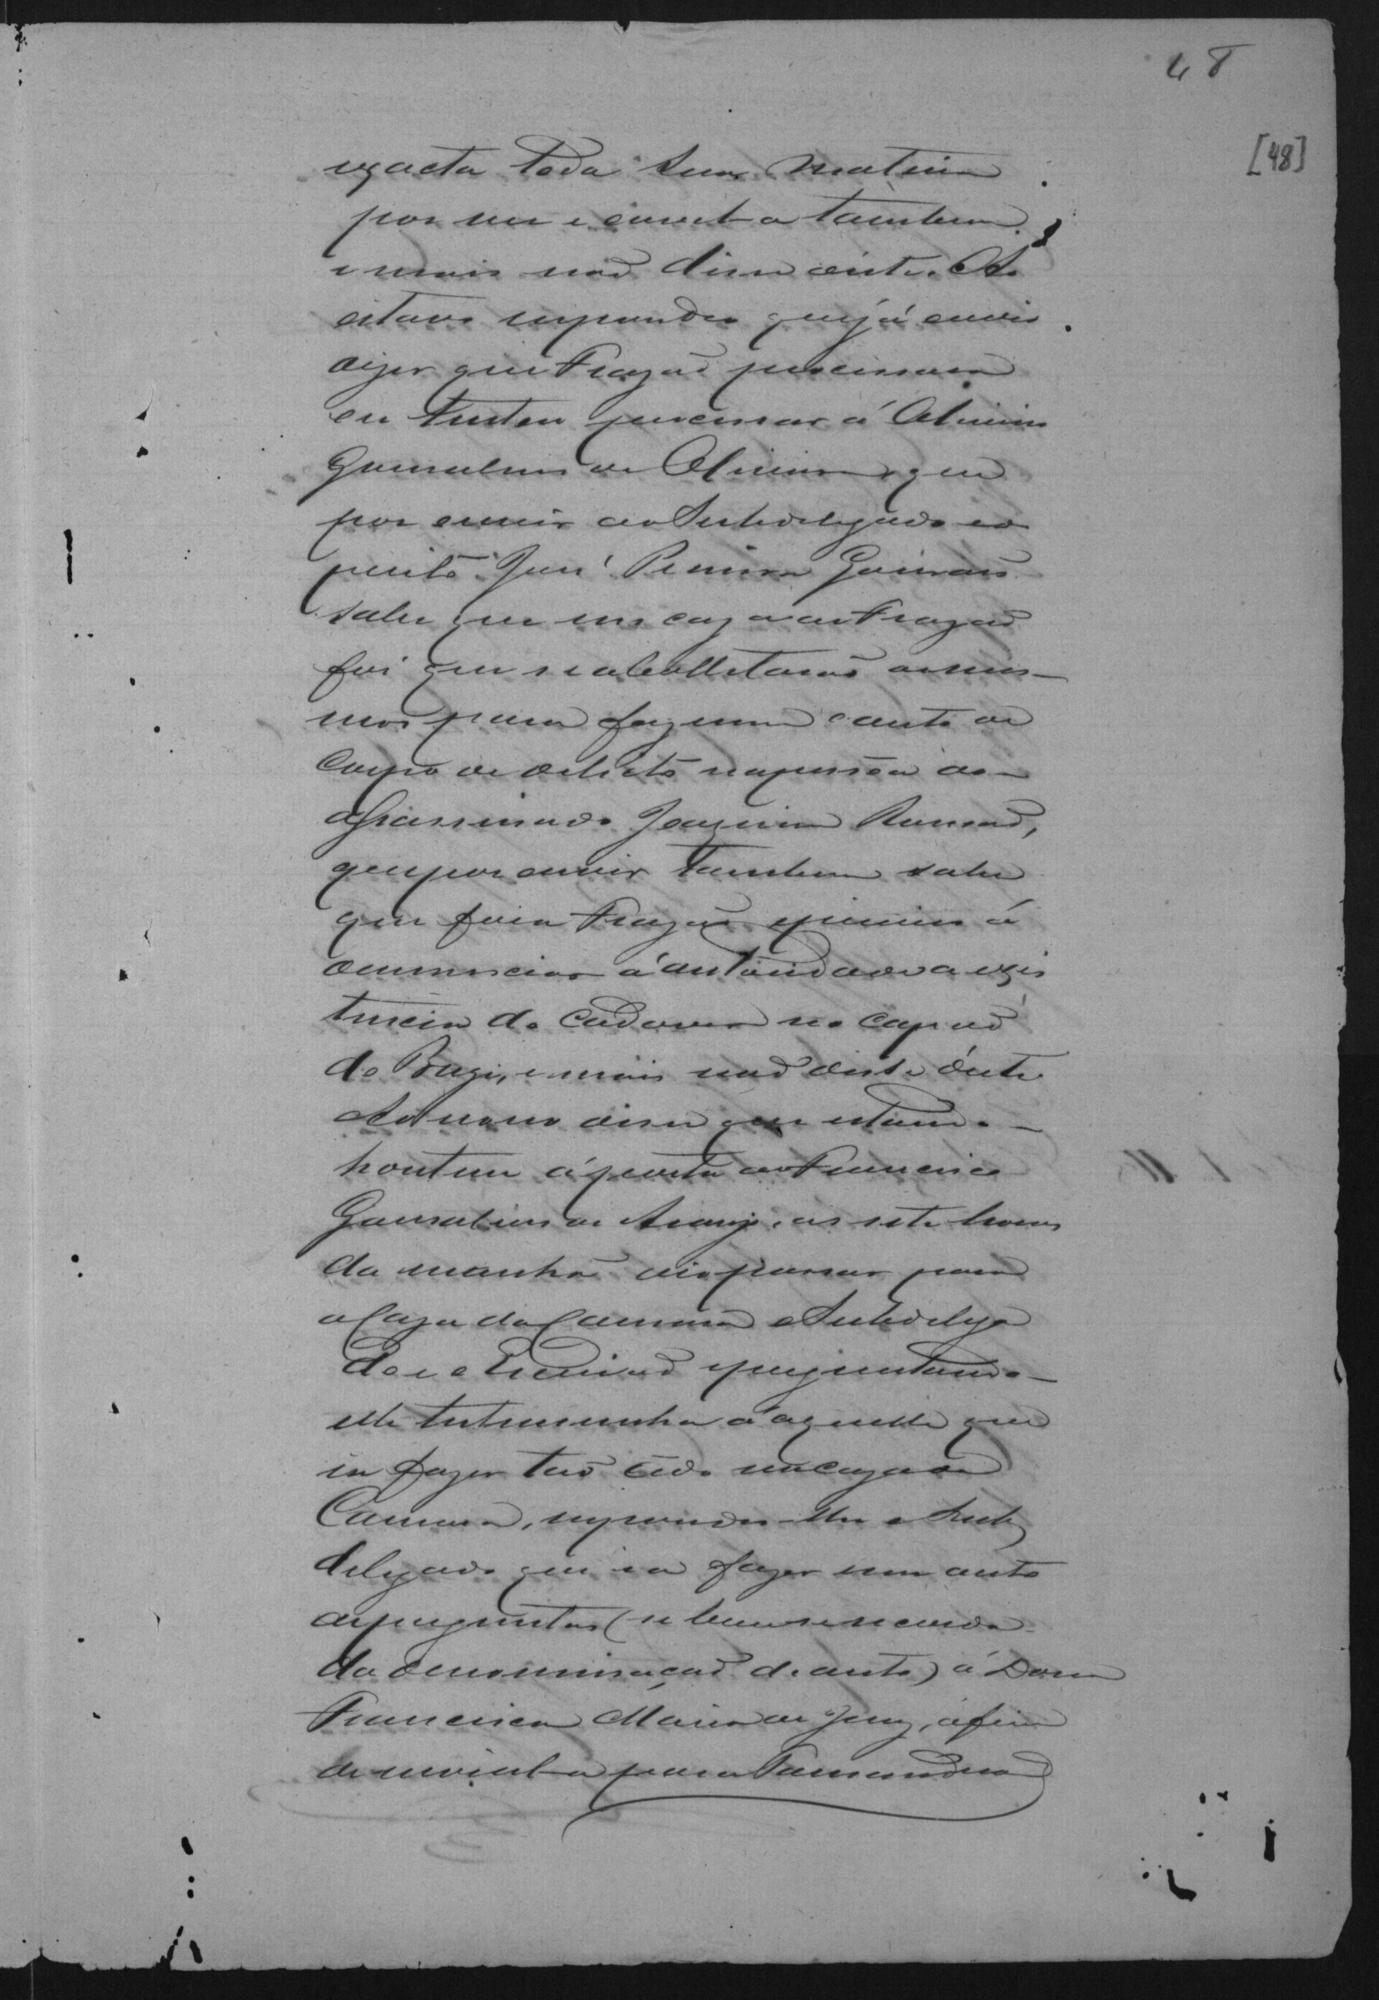 48
[48]
exacta toda sua materia
por ver e ouvil-a tambem
e mais naõ disse deste. Ao
oitavo respondeo que já ouvio
dizer que Frazaõ
Gonsalves de Oliveira, que
por ouvir ao Subdelegado e o
perito José Pereira Guimaraẽs
sabe que em caza de Frazaõ
foi que se aboletaraõ os mes-
mos para fazerem o auto de
Corpo de delicto na pessôa do
assassinado Joaquim Ramos,
que por ouvir tambem sabe
que foi a Frazaõ
denunciar á autoridade a exis
tencia do cadaver no capaõ
do Bugre, e mais naõ disse deste
Ao nono disse que estando
hontem á porta de Francisco
Gonsalves de Araujo, as sete horas
da manhã vio passar para
a Caza da Camara o Subdelega
do e o Escrivaõ e perguntando
elle testemunha a aquelle que
ia fazer taõ cêdo na caza da
Camara, respondeo-lhe o Sub
delegado que ia fazer um auto
de perguntas (se bem se recorda
da denominaçaõ do auto) á Dona
Francisca Maria de Jesuz, afim
de envial-a para Tamanduá